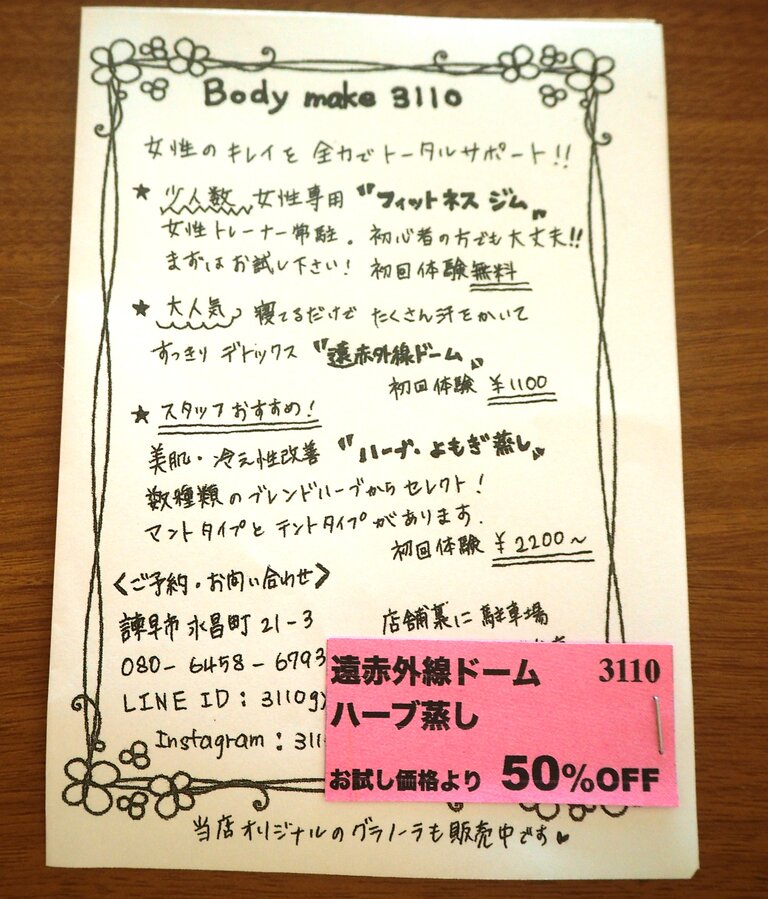 Body make 3110
女性のキレイを全力でトータルサポート!!
★ 少人数 女性専用 "フィットネス ジム"
女性トレーナー常駐。初心者の方でも大丈夫!!
まずはお試し下さい! 初回体験無料
★ 大人気♪ 寝てるだけで たくさん汗をかいて
すっきり デトックス "遠赤外線ドーム"
初回体験 ¥1100
★ スタッフおすすめ!
美肌・冷え性改善 "ハーブ・よもぎ蒸し"
数種類のブレンドハーブから セレクト!
マントタイプと テントタイプがあります.
初回体験 ¥2200～
<ご予約・お問い合わせ>
諫早市永昌町21-3
080-6458-6793
LINE ID: 3110g
Instagram: 311
店舗裏に 駐車場
遠赤外線ドーム 3110
ハーブ蒸し
お試し価格より 50%OFF
当店オリジナルのグラノーラも販売中です♥